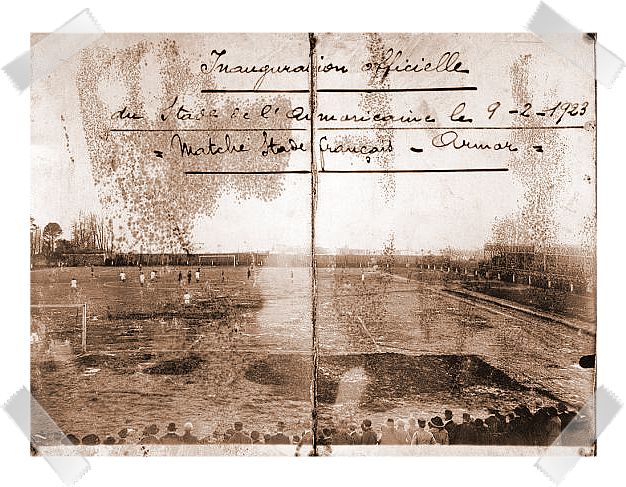 Inauguration officielle
du Stade de l'Armoricaine le 9-2-1923
= Matche Stade français - Armor =